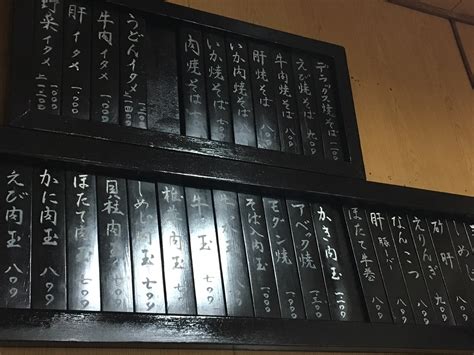 デラックス焼そば
えび焼そば 九〇〇
牛肉焼そば 八〇〇
肝焼そば 八〇〇
いか肉焼そば 八〇〇
いか焼そば 七〇〇
肉焼そば 七〇〇
うどんイタメ
牛肉イタメ 一〇〇〇
肝イタメ 一〇〇〇
野菜イタメ
しめ
砂肝 九〇〇
えりんぎ 八〇〇
なんこつ 八〇〇
肝 豚レバー 八〇〇
ほたて牛巻 八〇〇
かき肉玉
アベック焼
モダン焼
そば入肉玉
牛玉 七〇〇
椎茸肉玉
しめじ肉玉 七〇〇
貝柱肉玉 八〇〇
ほたて肉玉 八〇〇
かに肉玉 八〇〇
えび肉玉 八〇〇